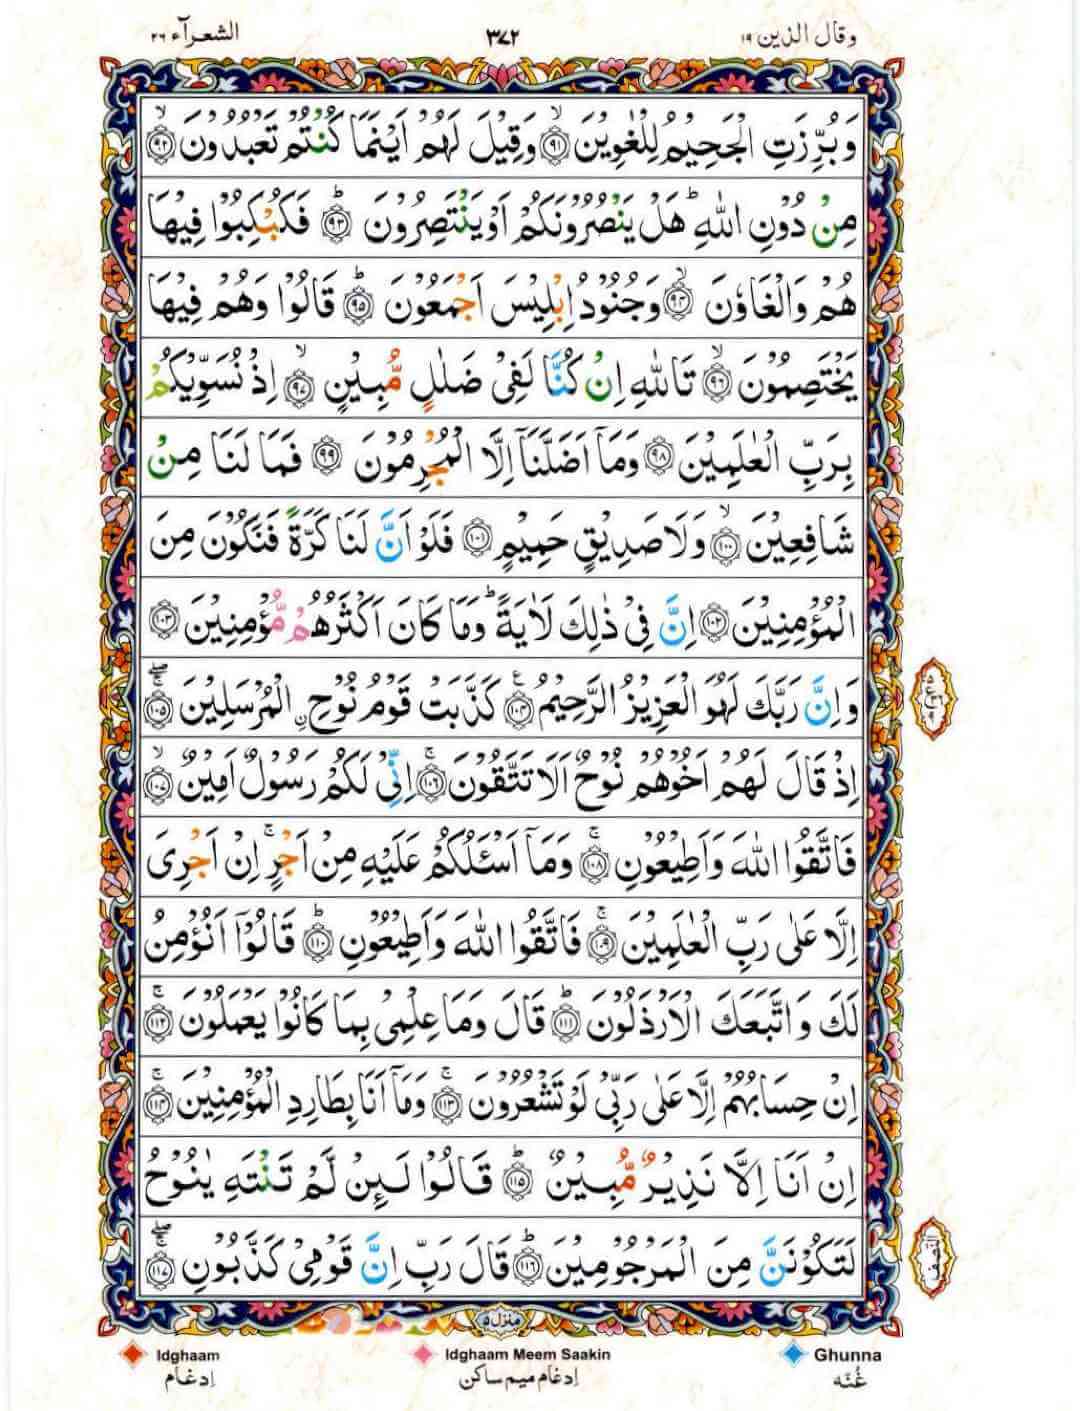 وقال الذين ١٩ ٣٧٢ الشعرآء ٢٦
وَبُرِّزَتِ الْجَحِيْمُ لِلْغٰوِيْنَ ۙ﴿٩١﴾ وَقِيْلَ لَهُمْ اَيْنَمَا كُنْتُمْ تَعْبُدُوْنَ ۙ﴿٩٢﴾
مِنْ دُوْنِ اللّٰهِ ؕ هَلْ يَنْصُرُوْنَكُمْ اَوْ يَنْتَصِرُوْنَ ؕ﴿٩٣﴾ فَكُبْكِبُوْا فِيْهَا
هُمْ وَالْغَاوٗنَ ۙ﴿٩٤﴾ وَجُنُوْدُ اِبْلِيْسَ اَجْمَعُوْنَ ؕ﴿٩٥﴾ قَالُوْا وَهُمْ فِيْهَا
يَخْتَصِمُوْنَ ۙ﴿٩٦﴾ تَاللّٰهِ اِنْ كُنَّا لَفِىْ ضَلٰلٍ مُّبِيْنٍ ۙ﴿٩٧﴾ اِذْ نُسَوِّيْكُمْ
بِرَبِّ الْعٰلَمِيْنَ ﴿٩٨﴾ وَمَاۤ اَضَلَّنَاۤ اِلَّا الْمُجْرِمُوْنَ ﴿٩٩﴾ فَمَا لَنَا مِنْ
شَافِعِيْنَ ۙ﴿١٠٠﴾ وَلَا صَدِيْقٍ حَمِيْمٍ ﴿١٠١﴾ فَلَوْ اَنَّ لَنَا كَرَّةً فَنَكُوْنَ مِنَ
الْمُؤْمِنِيْنَ ﴿١٠٢﴾ اِنَّ فِىْ ذٰلِكَ لَاٰيَةً ؕ وَمَا كَانَ اَكْثَرُهُمْ مُّؤْمِنِيْنَ ﴿١٠٣﴾
وَاِنَّ رَبَّكَ لَهُوَ الْعَزِيْزُ الرَّحِيْمُ ﴿١٠٤﴾ كَذَّبَتْ قَوْمُ نُوْحِ ۨالْمُرْسَلِيْنَ ۚۖ﴿١٠٥﴾
اِذْ قَالَ لَهُمْ اَخُوْهُمْ نُوْحٌ اَلَا تَتَّقُوْنَ ۚ﴿١٠٦﴾ اِنِّىْ لَكُمْ رَسُوْلٌ اَمِيْنٌ ۙ﴿١٠٧﴾
فَاتَّقُوا اللّٰهَ وَاَطِيْعُوْنِ ۚ﴿١٠٨﴾ وَمَاۤ اَسْـَٔلُكُمْ عَلَيْهِ مِنْ اَجْرٍ ۚ اِنْ اَجْرِىَ
اِلَّا عَلٰى رَبِّ الْعٰلَمِيْنَ ۚ﴿١٠٩﴾ فَاتَّقُوا اللّٰهَ وَاَطِيْعُوْنِ ؕ﴿١١٠﴾ قَالُوْۤا اَنُؤْمِنُ
لَكَ وَاتَّبَعَكَ الْاَرْذَلُوْنَ ؕ﴿١١١﴾ قَالَ وَمَا عِلْمِىْ بِمَا كَانُوْا يَعْمَلُوْنَ ۚ﴿١١٢﴾
اِنْ حِسَابُهُمْ اِلَّا عَلٰى رَبِّىْ لَوْ تَشْعُرُوْنَ ۚ﴿١١٣﴾ وَمَاۤ اَنَا بِطَارِدِ الْمُؤْمِنِيْنَ ۚ﴿١١٤﴾
اِنْ اَنَا اِلَّا نَذِيْرٌ مُّبِيْنٌ ؕ﴿١١٥﴾ قَالُوْا لَـئِنْ لَّمْ تَنْتَهِ يٰنُوْحُ
لَتَكُوْنَنَّ مِنَ الْمَرْجُوْمِيْنَ ؕ﴿١١٦﴾ قَالَ رَبِّ اِنَّ قَوْمِىْ كَذَّبُوْنِ ۚۖ﴿١١٧﴾
النصف
منزل ٥
Idghaam Idghaam Meem Saakin Ghunna
اِدغام اِدغام میم ساکن غُنّه